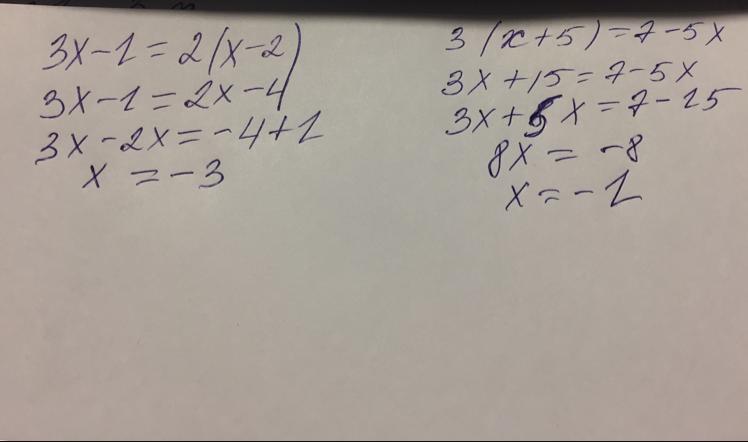 3x-1=2(x-2)
3x-1=2x-4
3x-2x=-4+1
x=-3
3(x+5)=7-5x
3x+15=7-5x
3x+5x=7-15
8x=-8
x=-1